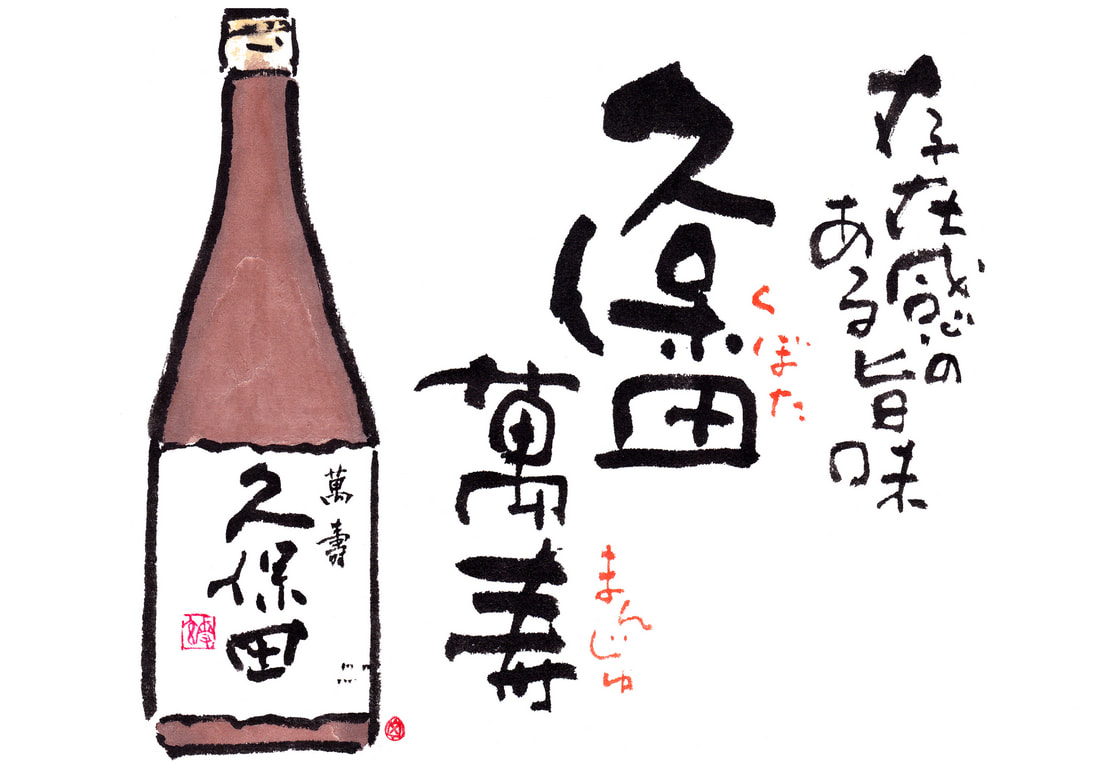 存在感の
ある旨味
久保田
くぼた
萬寿
まんじゅ
萬壽
久保田